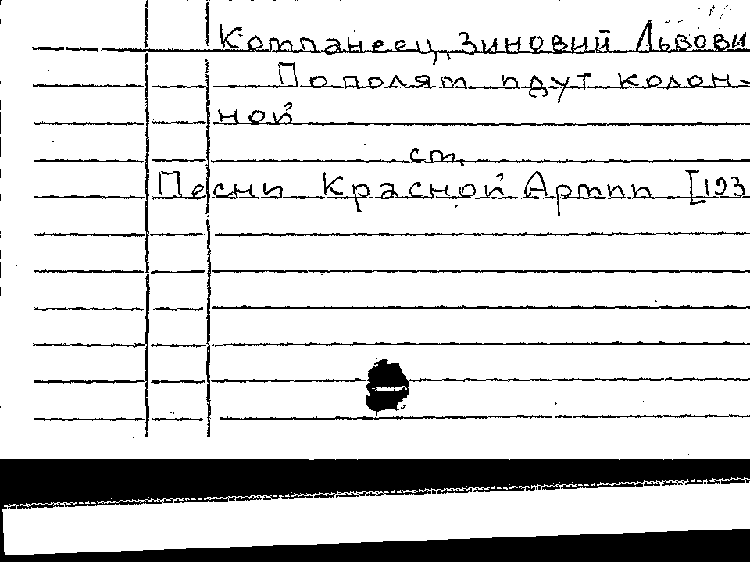 Компанеец, Зиновий Львови
По полям идут колон-
ной
ст.
Песни Красной Армии [193